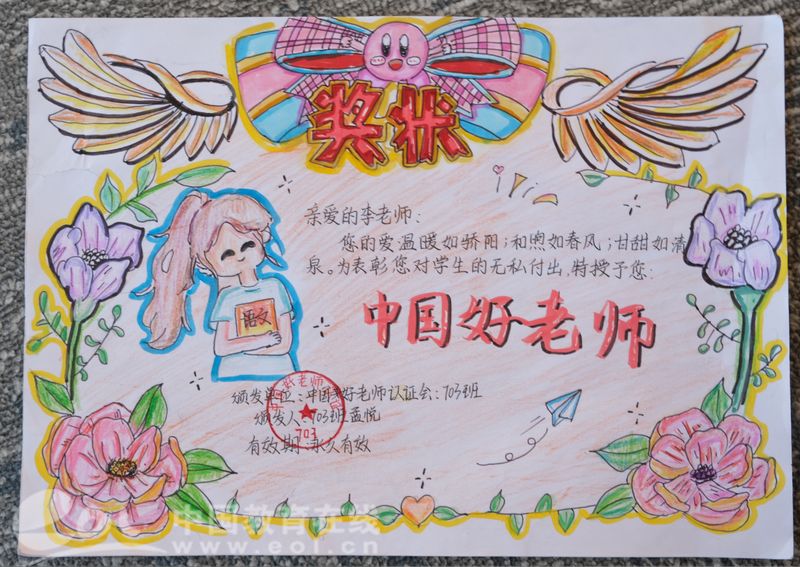 奖状
亲爱的李老师:
您的爱温暖如骄阳;和煦如春风;甘甜如清
泉。为表彰您对学生的无私付出,特授予您:
中国好老师
语文
颁发单位:中国好老师认证会:703班
颁发人:703班孟悦
有效期:永久有效
703
中国教育在线
www.eol.cn